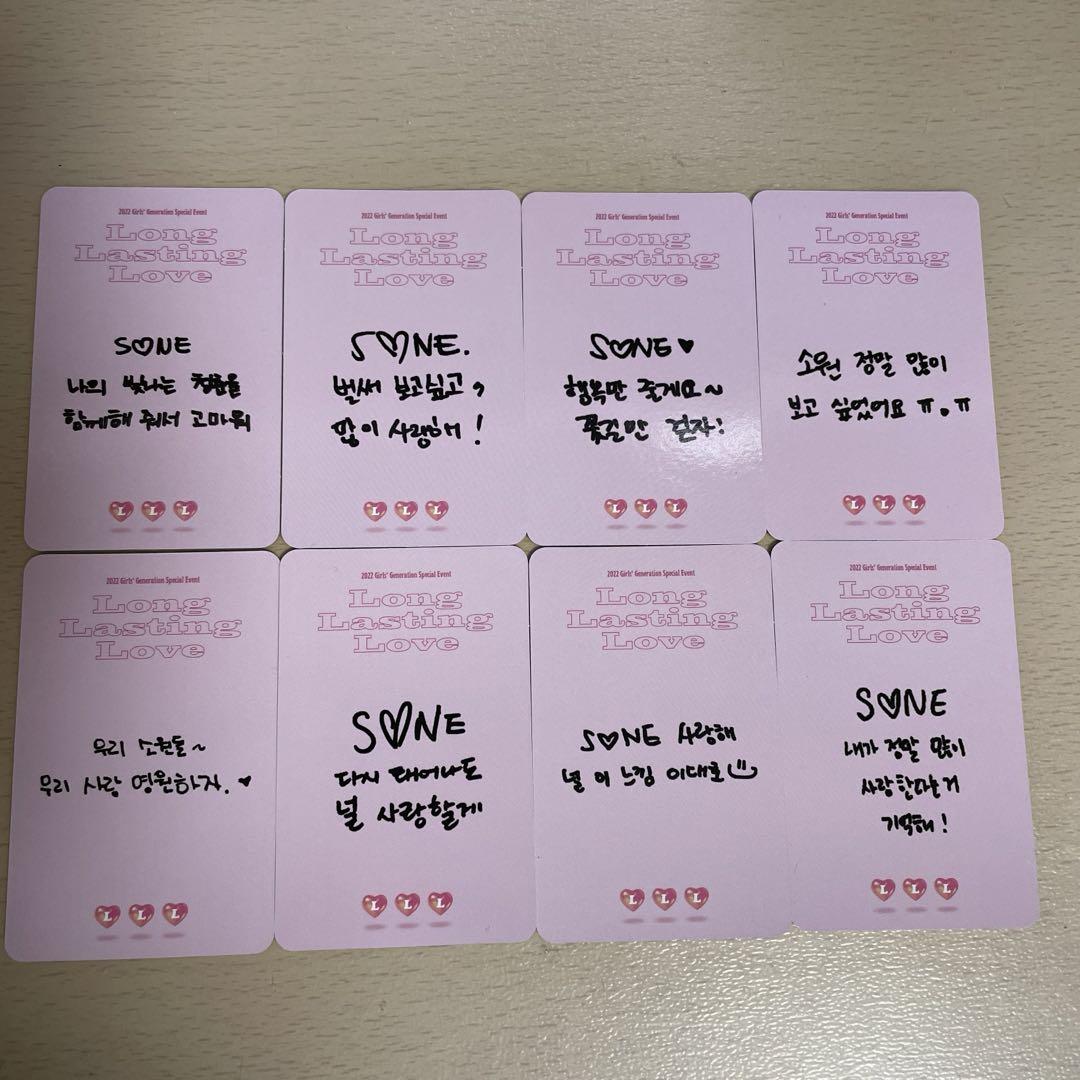 2022 Girls' Generation Special Event
Long
Lasting
Love
S♡NE
나의 빛나는 청춘을
함께해 줘서 고마워
L L L
2022 Girls' Generation Special Event
Long
Lasting
Love
S♡NE.
벌써 보고싶고,
많이 사랑해!
L L L
2022 Girls' Generation Special Event
Long
Lasting
Love
S♡NE♥
행복만 줄게요~
꽃길만 걷자!
L L L
2022 Girls' Generation Special Event
Long
Lasting
Love
소원 정말 많이
보고 싶었어요 ㅠ.ㅠ
L L L
2022 Girls' Generation Special Event
Long
Lasting
Love
우리 소원들~
우리 사랑 영원하자.♥
L L L
2022 Girls' Generation Special Event
Long
Lasting
Love
S♡NE
다시 태어나도
널 사랑할게
L L L
2022 Girls' Generation Special Event
Long
Lasting
Love
S♡NE 사랑해
널 이 느낌 이대로
L L L
2022 Girls' Generation Special Event
Long
Lasting
Love
S♡NE
내가 정말 많이
사랑한다는거
기억해!
L L L